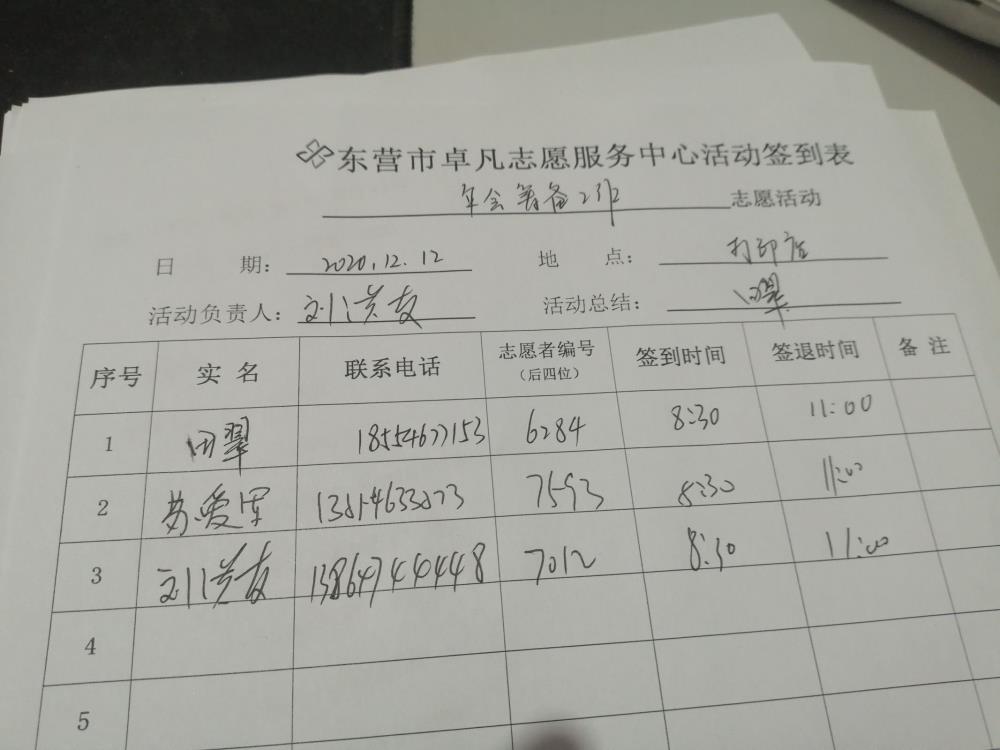 东营市卓凡志愿服务中心活动签到表
年会筹备 志愿活动
日 期: 2020.12.12 地 点: 打印店
活动负责人: 刘洪友 活动总结: 田翠
序号 实 名 联系电话 志愿者编号 (后四位) 签到时间 签退时间 备 注
1 田翠 18554677153 6284 8:30 11:00
2 苏爱军 7593 8:30 11:00
3 刘洪友 13864744448 7012 8:30 11:00
4
5